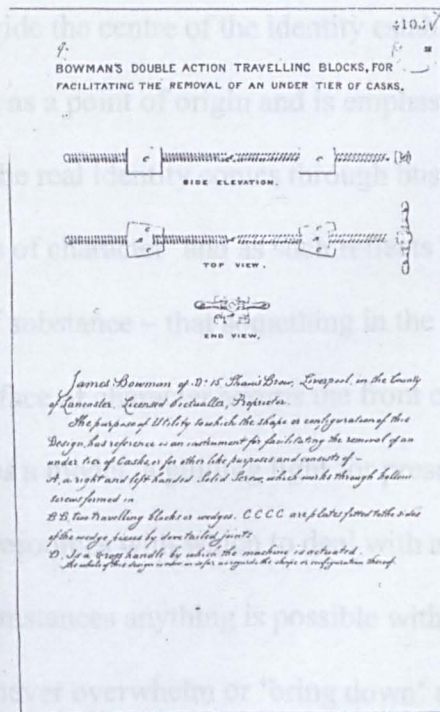 BOWMAN'S DOUBLE ACTION TRAVELLING BLOCKS, FOR
FACILITATING THE REMOVAL OF AN UNDER TIER OF CASKS.
SIDE ELEVATION.
TOP VIEW.
END VIEW.
James Bowman of No. 15, Brow, Liverpool, in the County
of Lancaster, Licensed Victualler, Proprietor.
The purpose of Utility to which the shape or configuration of this
Design has reference is an instrument for facilitating the removal of an
under tier of Casks or for other like purposes and consists of –
A, a right and left handed Solid Screw, which works through hollow
screws formed in
B.B. two travelling blocks or wedges. C C C C are plates fitted to the sides
of the wedge pieces by dovetailed joints
D. Is a Cross handle by which the machine is actuated.
The whole of this design is new in so far as regards the shape or configuration thereof.